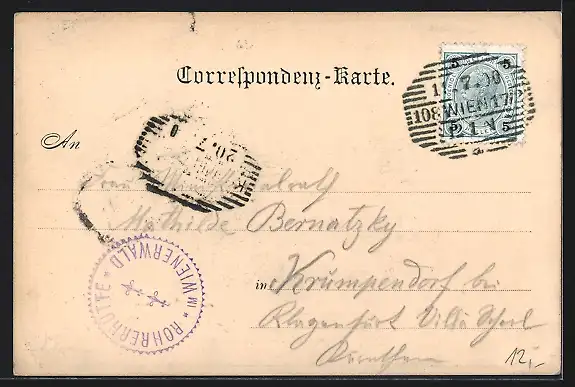 Correspondenz-Karte.
5 5
11 7.00
108 WIEN 17/1
2 1 5
An
20.7
Frau
Mathilde Bernatzky
in Krumpendorf bei
Klagenfurt Villa
Kaernthen
ROHRERHÜTTE * WIENERWALD *
12,-